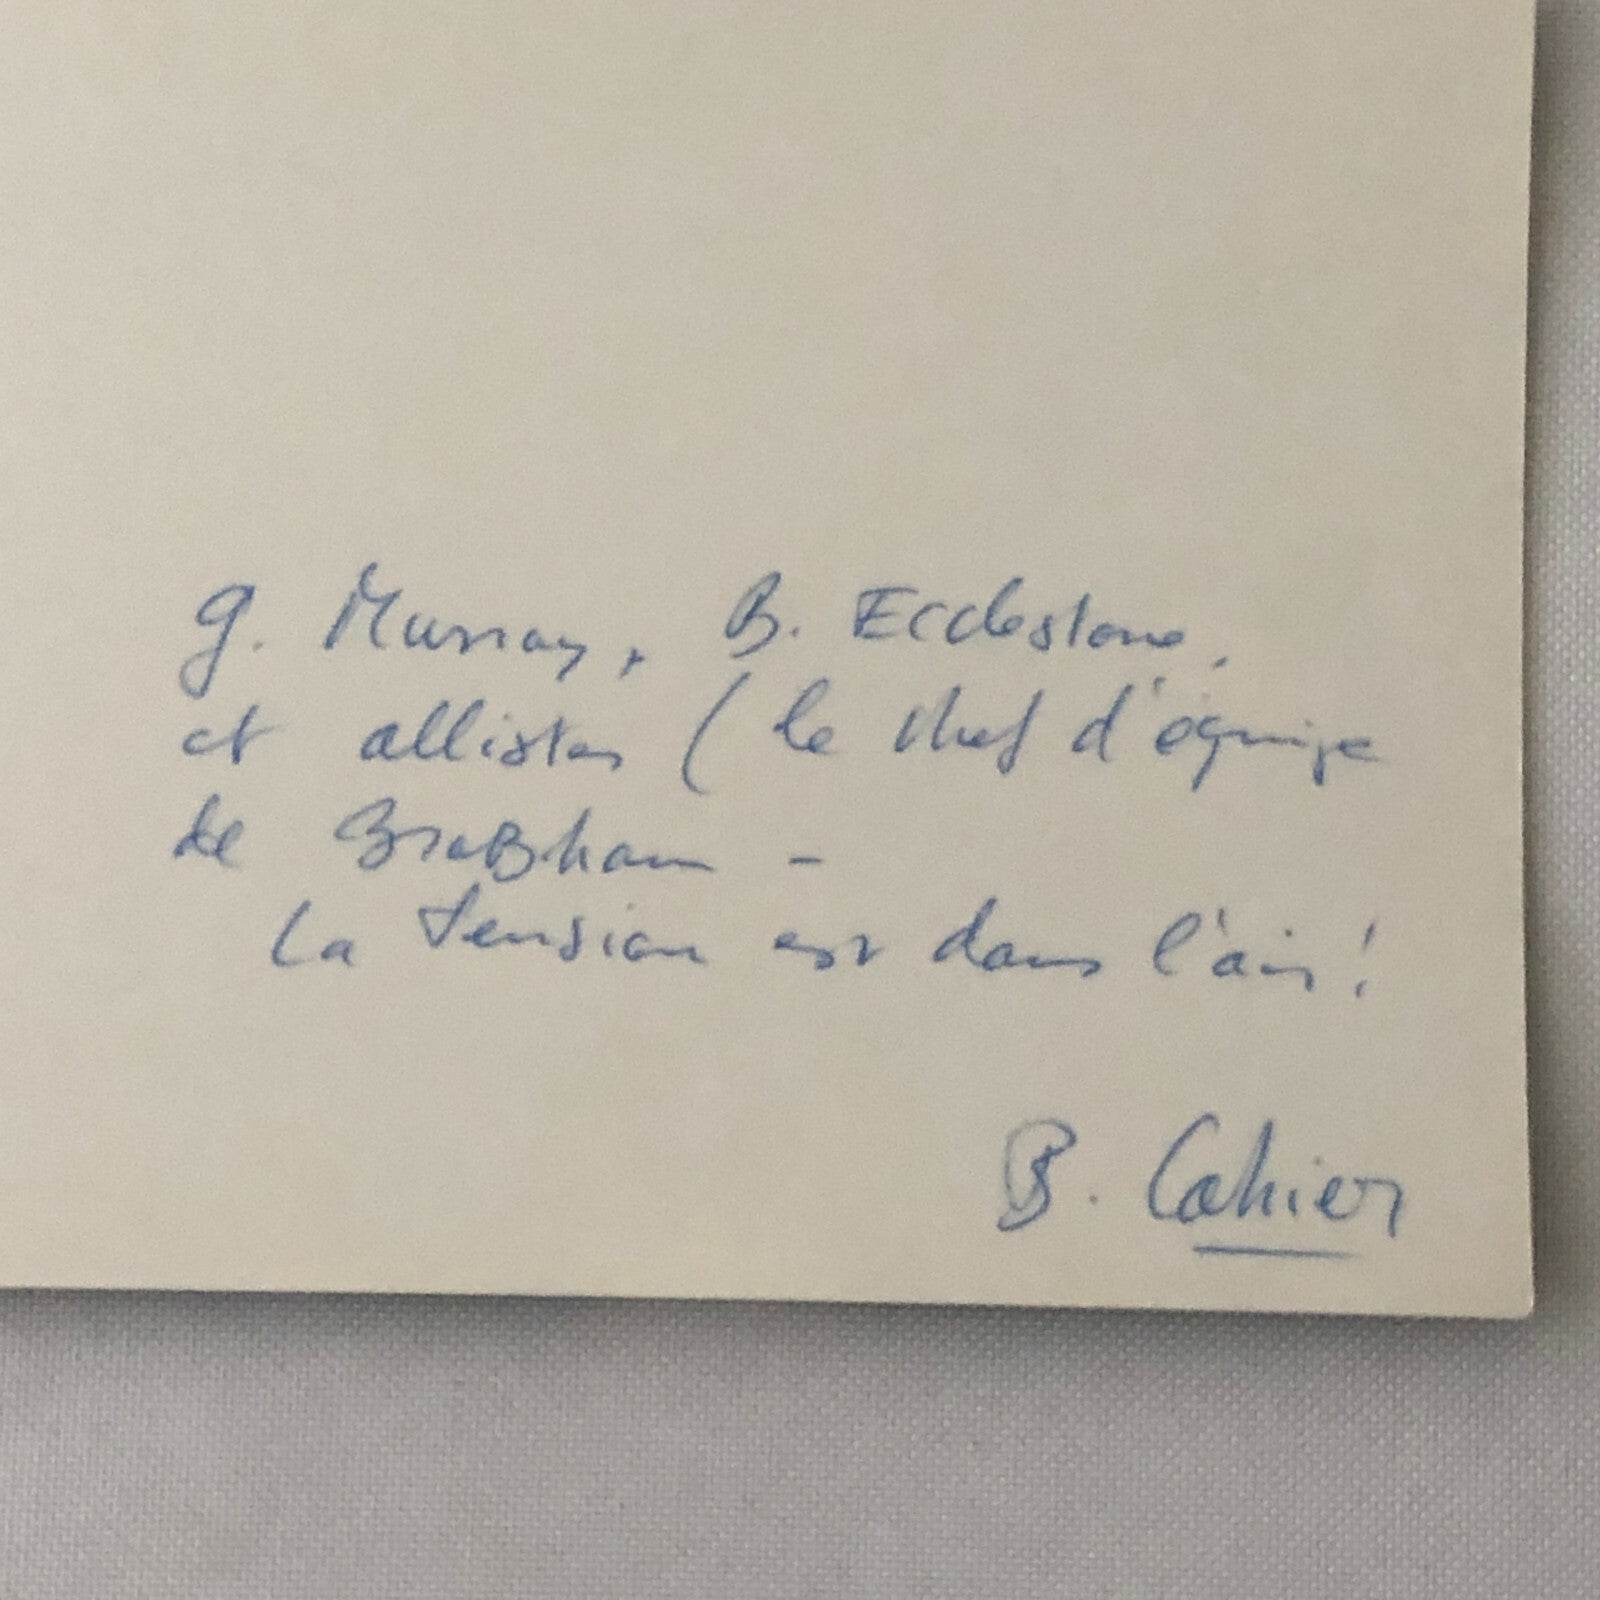 G. Murray, B. Ecclestone,
et allister (le chef d'équipe
de Brabham -
La tension est dans l'air!
B. Cahier